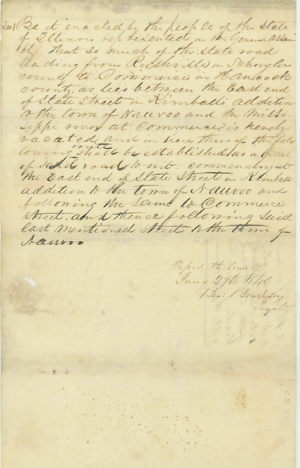 Be it enacted by the people of the State
of Illinois represented in the General Assem
bly that so much of the State road
leading from Rushville in Schuyler
county to Commerce in Hancock
county as lies between the East end
of State Street in Kimballs addition
to the town of Nauvoo and the Missis
sippi river at Commerce is hereby
vacated and in lieu thereof the fol
lowing route be established as a part
of said road to wit commencing at
the East end of State Street in Kimballs
addition to the town of Nauvoo and
following the same to Commerce
street, and thence following said
last mentioned Street to the town of
Nauvoo
Passed the Senate
Jany 27th 1840